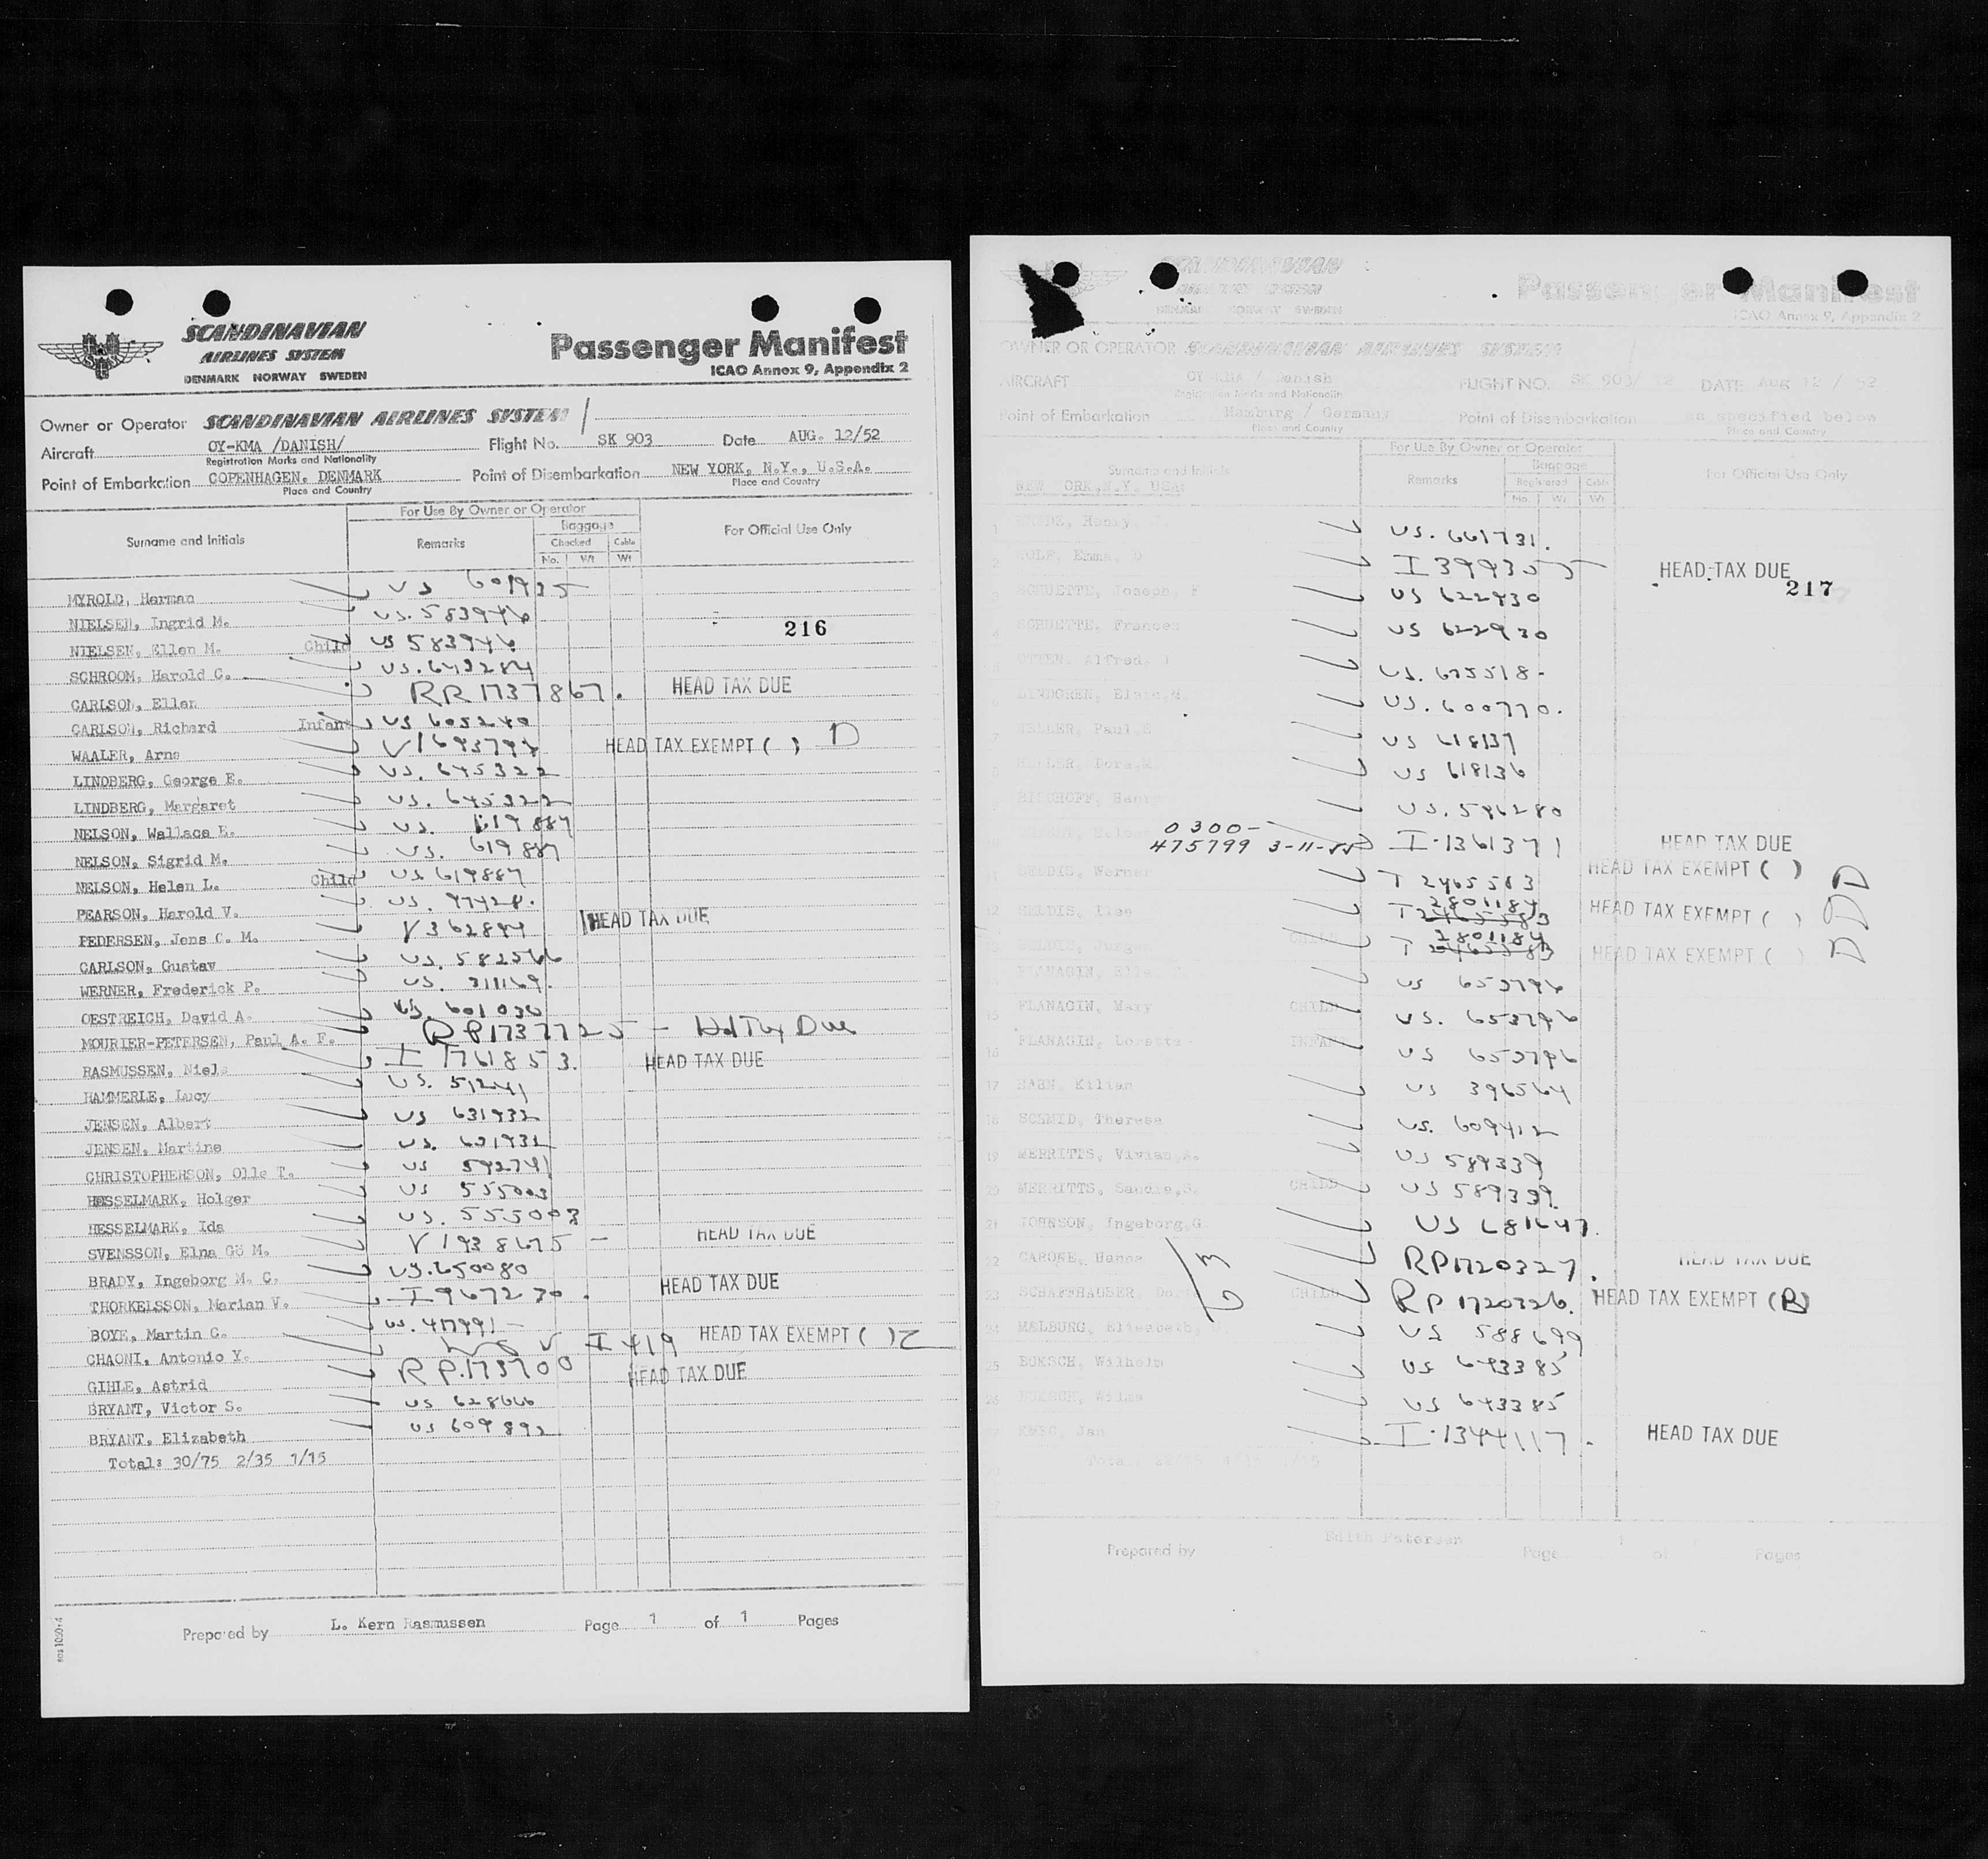 SCANDINAVIAN
AIRLINES SYSTEM
DENMARK NORWAY SWEDEN
Passenger Manifest
ICAO Annex 9, Appendix 2
Owner or Operator SCANDINAVIAN AIRLINES SYSTEM
Aircraft OY-KMA /DANISH/ Flight No. SK 903 Date AUG. 12/52
Registration Marks and Nationality
Point of Embarkation COPENHAGEN, DENMARK Point of Disembarkation NEW YORK, N.Y., U.S.A.
Place and Country Place and Country
For Use By Owner or Operator
Surname and Initials Remarks Baggage For Official Use Only
Checked Cabin
No. Wt Wt
MYROLD, Herman US 601935
NIELSEN, Ingrid M. US. 583946
216
NIELSEN, Ellen M. Child US 583946
SCHROOM, Harold C. US. 643284
CARLSON, Ellen RR 1737867. HEAD TAX DUE
CARLSON, Richard Infant US 605240
WAALER, Arne V1693794 HEAD TAX EXEMPT ( ) D
LINDBERG, George E. US. 645322
LINDBERG, Margaret US. 645322
NELSON, Wallace E. US. 619887
NELSON, Sigrid M. US. 619887
NELSON, Helen L. Child US 619887
PEARSON, Harold V. US. 97428.
PEDERSEN, Jens C. M. V362894 HEAD TAX DUE
CARLSON, Gustav US. 582566
WERNER, Frederick P. US. 311169.
OESTREICH, David A. US. 601030
MOURIER-PETERSEN, Paul A. F. RP1737725 - Hd Tax Due
RASMUSSEN, Niels I 1761853. HEAD TAX DUE
HAMMERLE, Lucy US. 51241
JENSEN, Albert US 631932
JENSEN, Martine US. 631932
CHRISTOPHERSON, Olle T. US 592741
HESSELMARK, Holger US 555003
HESSELMARK, Ida US. 555003
SVENSSON, Elna Gö M. V1938675 - HEAD TAX DUE
BRADY, Ingeborg M. C. US.650080
THORKELSSON, Marian V. I967230. HEAD TAX DUE
BOYE, Martin C. US. 417991-
CHAONI, Antonio Y. I 419 HEAD TAX EXEMPT ( )
GIHLE, Astrid RP.173700 HEAD TAX DUE
BRYANT, Victor S. US 628666
BRYANT, Elizabeth US 609892
Total: 30/75 2/35 1/15
Prepared by L. Kern Rasmussen Page 1 of 1 Pages
SCANDINAVIAN
AIRLINES SYSTEM
DENMARK NORWAY SWEDEN
Passenger Manifest
ICAO Annex 9, Appendix 2
OWNER OR OPERATOR SCANDINAVIAN AIRLINES SYSTEM
AIRCRAFT OY-KMA / Danish FLIGHT NO. SK 903/ 12 DATE Aug 12 / 52
Registration Marks and Nationality
Point of Embarkation Hamburg / Germany Point of Disembarkation as specified below
Place and Country Place and Country
For Use By Owner or Operator
Surname and Initials Remarks Baggage For Official Use Only
Registered Cabin
NEW YORK, N.Y. USA:
No. Wt Wt
1 Henry US. 661731.
2 WOLF, Emma I399305 HEAD TAX DUE
217
SCHUETTE, Joseph US 622930
4 SCHUETTE, Frances US 622930
OTTEN, Alfred US. 675518-
LINDGREN, Elsie M. US. 600770.
7 Paul US 618137
Dora US 618136
BISCHOFF, Henry US. 596280
0300-
475799 3-11-55 I-1361371 HEAD TAX DUE
11 SELDIS, Werner T 2465583 HEAD TAX EXEMPT ( ) D
12 SELDIS, Ilse T 2465583 2801184 HEAD TAX EXEMPT ( ) D
13 SELDIS, Jurgen CHILD T 2465583 2801184 HEAD TAX EXEMPT ( ) D
FLANAGIN, US 653796
15 FLANAGIN, Mary CHILD US. 653796
16 FLANAGIN, Loretta INFANT US 653796
17 HAHN, Kilian US 396564
18 SCHMID, Therese US. 609412
19 MERRITTS, Vivian, A. US 589339
20 MERRITTS, Sandra, S. CHILD US 589339.
21 JOHNSON, Ingeborg, G US 681647.
22 CARONE, Hanna RP1720327. HEAD TAX DUE
23 SCHAFFHAUSER, CHILD RP 1720326. HEAD TAX EXEMPT (B)
63
24 MELBURG, Elisabeth US 588699
25 BOESCH, Wilhelm US 643385
26 BOESCH, Wilma US 643385
Jan I-1344117. HEAD TAX DUE
Prepared by Edith Petersen Page 1 of Pages